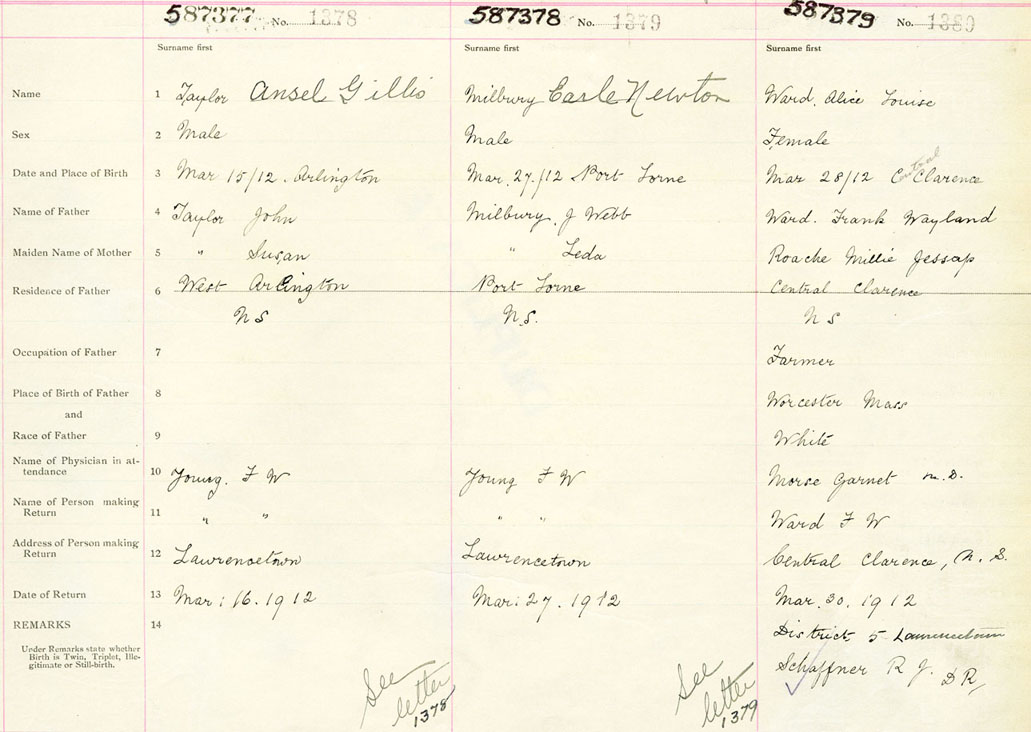 587377 No. 1378 587378 No. 1379 587379 No. 1380
Surname first Surname first Surname first
Name 1 Taylor Ansel Gillis Milbury Earle Newton Ward, Alice Louise
Sex 2 Male Male Female
Central
Date and Place of Birth 3 Mar 15/12. Arlington Mar. 27./12 Port Lorne Mar 28/12 C Clarence
Name of Father 4 Taylor John Milbury, J Webb Ward. Frank Wayland
Maiden Name of Mother 5 " Susan " Leda Roache Millie Jessap
Residence of Father 6 West Arlington Port Lorne Central Clarence
N S N.S. N S
Occupation of Father 7 Farmer
Place of Birth of Father 8 Worcester Mass
and
Race of Father 9 White
Name of Physician in at-
tendance 10 Young. F W Young F W Morse Garnet M.D.
Name of Person making
Return 11 " " " " Ward F W
Address of Person making
Return 12 Lawrencetown Lawrencetown Central Clarence, N. S.
Date of Return 13 Mar: 16. 1912 Mar: 27. 1912 Mar. 30. 1912
REMARKS 14 District 5 Lawrencetown
Under Remarks state whether
Birth is Twin, Triplet, Ille-
gitimate or Still-birth.
Schaffner R J. DR,
See See
letter letter
1378 1379